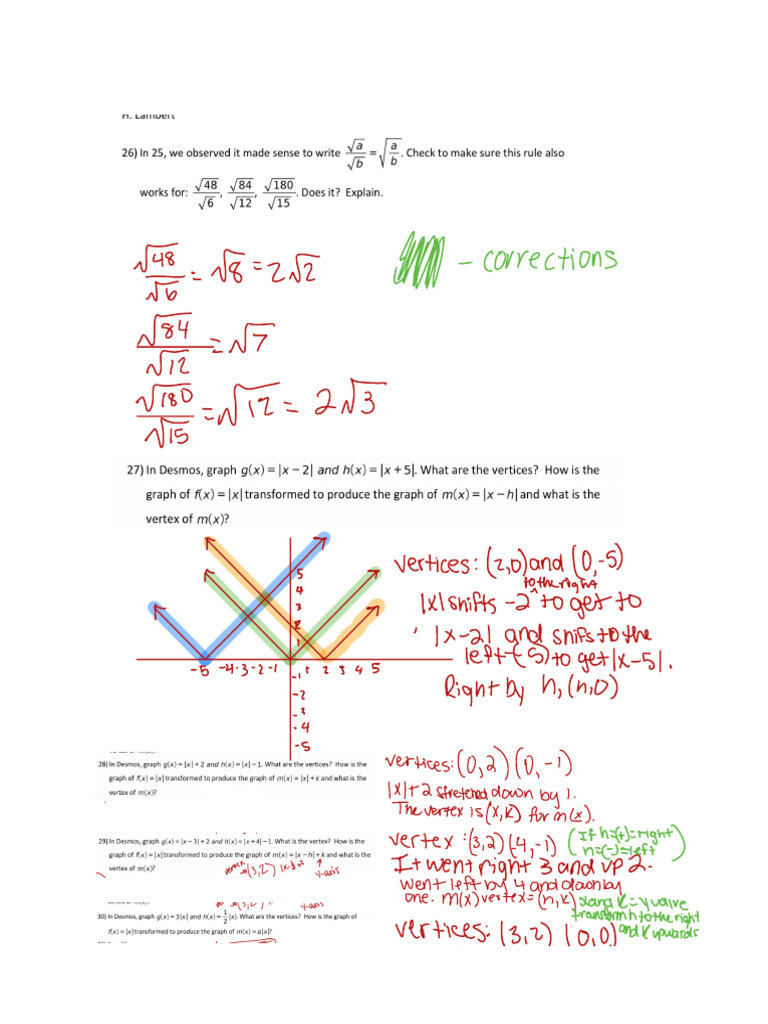 H. Lambert
26) In 25, we observed it made sense to write √a/√b = √(a/b). Check to make sure this rule also
works for: √48/√6, √84/√12, √180/√15. Does it? Explain.
√48/√6 = √8 = 2√2
- corrections
√84/√12 = √7
√180/√15 = √12 = 2√3
27) In Desmos, graph g(x) = |x − 2| and h(x) = |x + 5|. What are the vertices? How is the
graph of f(x) = |x| transformed to produce the graph of m(x) = |x − h| and what is the
vertex of m(x)?
5
4
3
2
1
-5 -4 -3 -2 -1 1 2 3 4 5
-1
-2
-3
-4
-5
vertices: (2,0) and (0,-5)
to the right
|x| shifts -2 ^ to get to
|x-2| and shifs to the
left (-5) to get |x-5|.
Right by h, (h,0)
28) In Desmos, graph g(x) = |x| + 2 and h(x) = |x| − 1. What are the vertices? How is the
graph of f(x) = |x| transformed to produce the graph of m(x) = |x| + k and what is the
vertex of m(x)?
vertices: (0,2) (0,-1)
|x|+2 stretched down by 1.
The vertex is (x,k) for m(x).
29) In Desmos, graph g(x) = |x − 3| + 2 and h(x) = |x + 4| − 1. What is the vertex? How is the
graph of f(x) = |x| transformed to produce the graph of m(x) = |x − h| + k and what is the
vertex of m(x)?
vertex (3,2)
y-axis
vertex: (3,2) (-4,-1)
(If h=(+)=right
h=(-)=left)
It went right 3 and up 2.
went left by 4 and down by
one. m(x) vertex = (h,k)
and k = y value
transform h to the right
and k upwards
y-axis
30) In Desmos, graph g(x) = 3|x| and h(x) = 1/2|x|. What are the vertices? How is the graph of
f(x) = |x| transformed to produce the graph of m(x) = a|x|?
vertices: (3,2) (0,0)